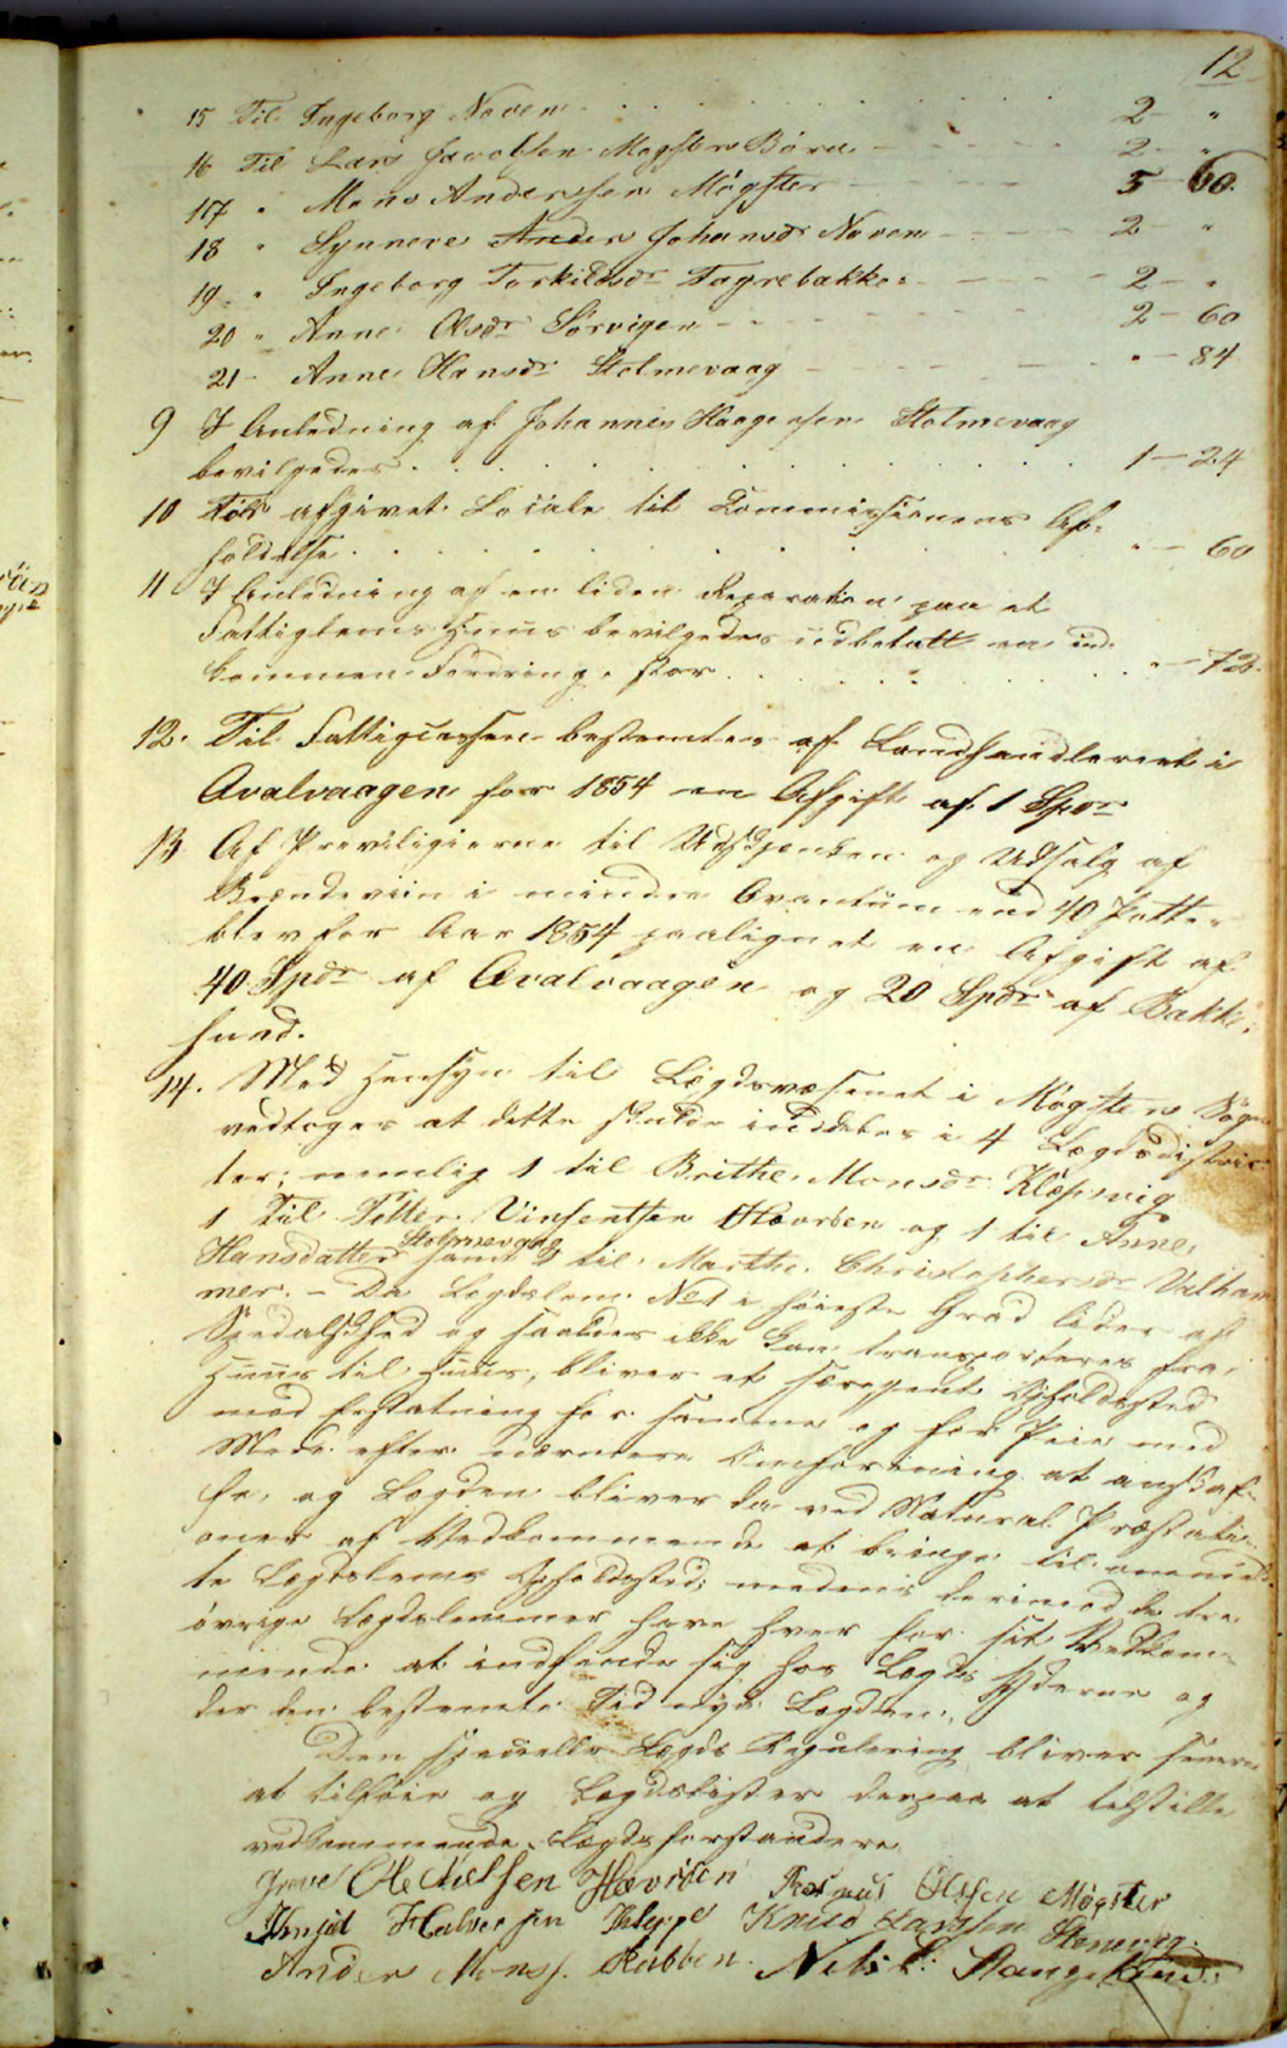 12
15 Til Ingeborg Noven . . . . . . . . 2 - "
16 Til Lars Jacobsen Møgsters Børn - - - - 2 - "
17 " Mons Anderssen Møgster - - - - 5 - 60.
18 " Synneve Anders Johansdr Noven - - - - 2 - "
19 " Ingeborg Torkildsdr Fagrebakke - - - - 2 - "
20 " Anne Olsdr Sörvigen - - - - 2 - 60
21 - Anne Hansdr Stolmevaag - - - - " - 84
9 I Anledning af Johannes Haagensen Stolmevaag
bevilgedes . . . . . . . . 1 - 24
10 For afgivet Locale til Commissionens Af-
holdelse . . . . . . . . " - 60
11 I Anledning af en liden Reparation paa et
Fattiglems Huus bevilgedes udbetalt en ind-
kommen Fordring, stor . . . . . . " - 72.
12. Til Fattigcassen bestemtes af Landhandleriet i
Qvalvaagen for 1854 en Afgift af 1 Spdr
13 Af Previligierne til Udskjenken og Udsalg af
Brændeviin i mindre Qvantum end 40 Potter
blev for Aar 1854 paalignet en Afgift af
40 Spdr af Qvalvaagen og 20 Spdr af Bakke-
sund.
14. Med Hensyn til Lægdsvæsenet i Møgsters Sogn
vedtoges at dette skulde inddeles i 4 Lægdsdistric-
ter; nemlig 1 til Brithe Monsdr Klepsvig
1 til Petter Vinsentsen Hevröen og 1 til Anne
Hansdatter Stolmevaag samt 1 til Marthe Christophersdr Valham-
mer. - Da Lægdslem No 1 i høieste Grad lider af
Spedalskhed og saaledes ikke kan transporteres fra
Huus til Huus, bliver et særegent Opholdssted
mod Erstatning for samme og for Pleie med
Mere efter nærmere Omforening at anskaf-
fe, og Lægden bliver da ved Natural Præstati-
oner af Vedkommende at bringe til ommeld-
te Lægdslems Opholdssted; medens derimod de tre
øvrige Lægdslemmer have hver for sit Vedkom-
mende at indfinde sig hos Lægds Yderne og
der den bestemte Tid nyde Lægden.
Den specielle Lægds Regulering bliver senere
at tilføie og Lægdslister derpaa at tilstille
vedkommende Lægdsforstandere
Greve Ole Nielsen Hævröen Rasmus Olssen Møgster
Halversen Kleppe Knud Larssen
Anders Monss. Rabben. Nels L. Stangeland